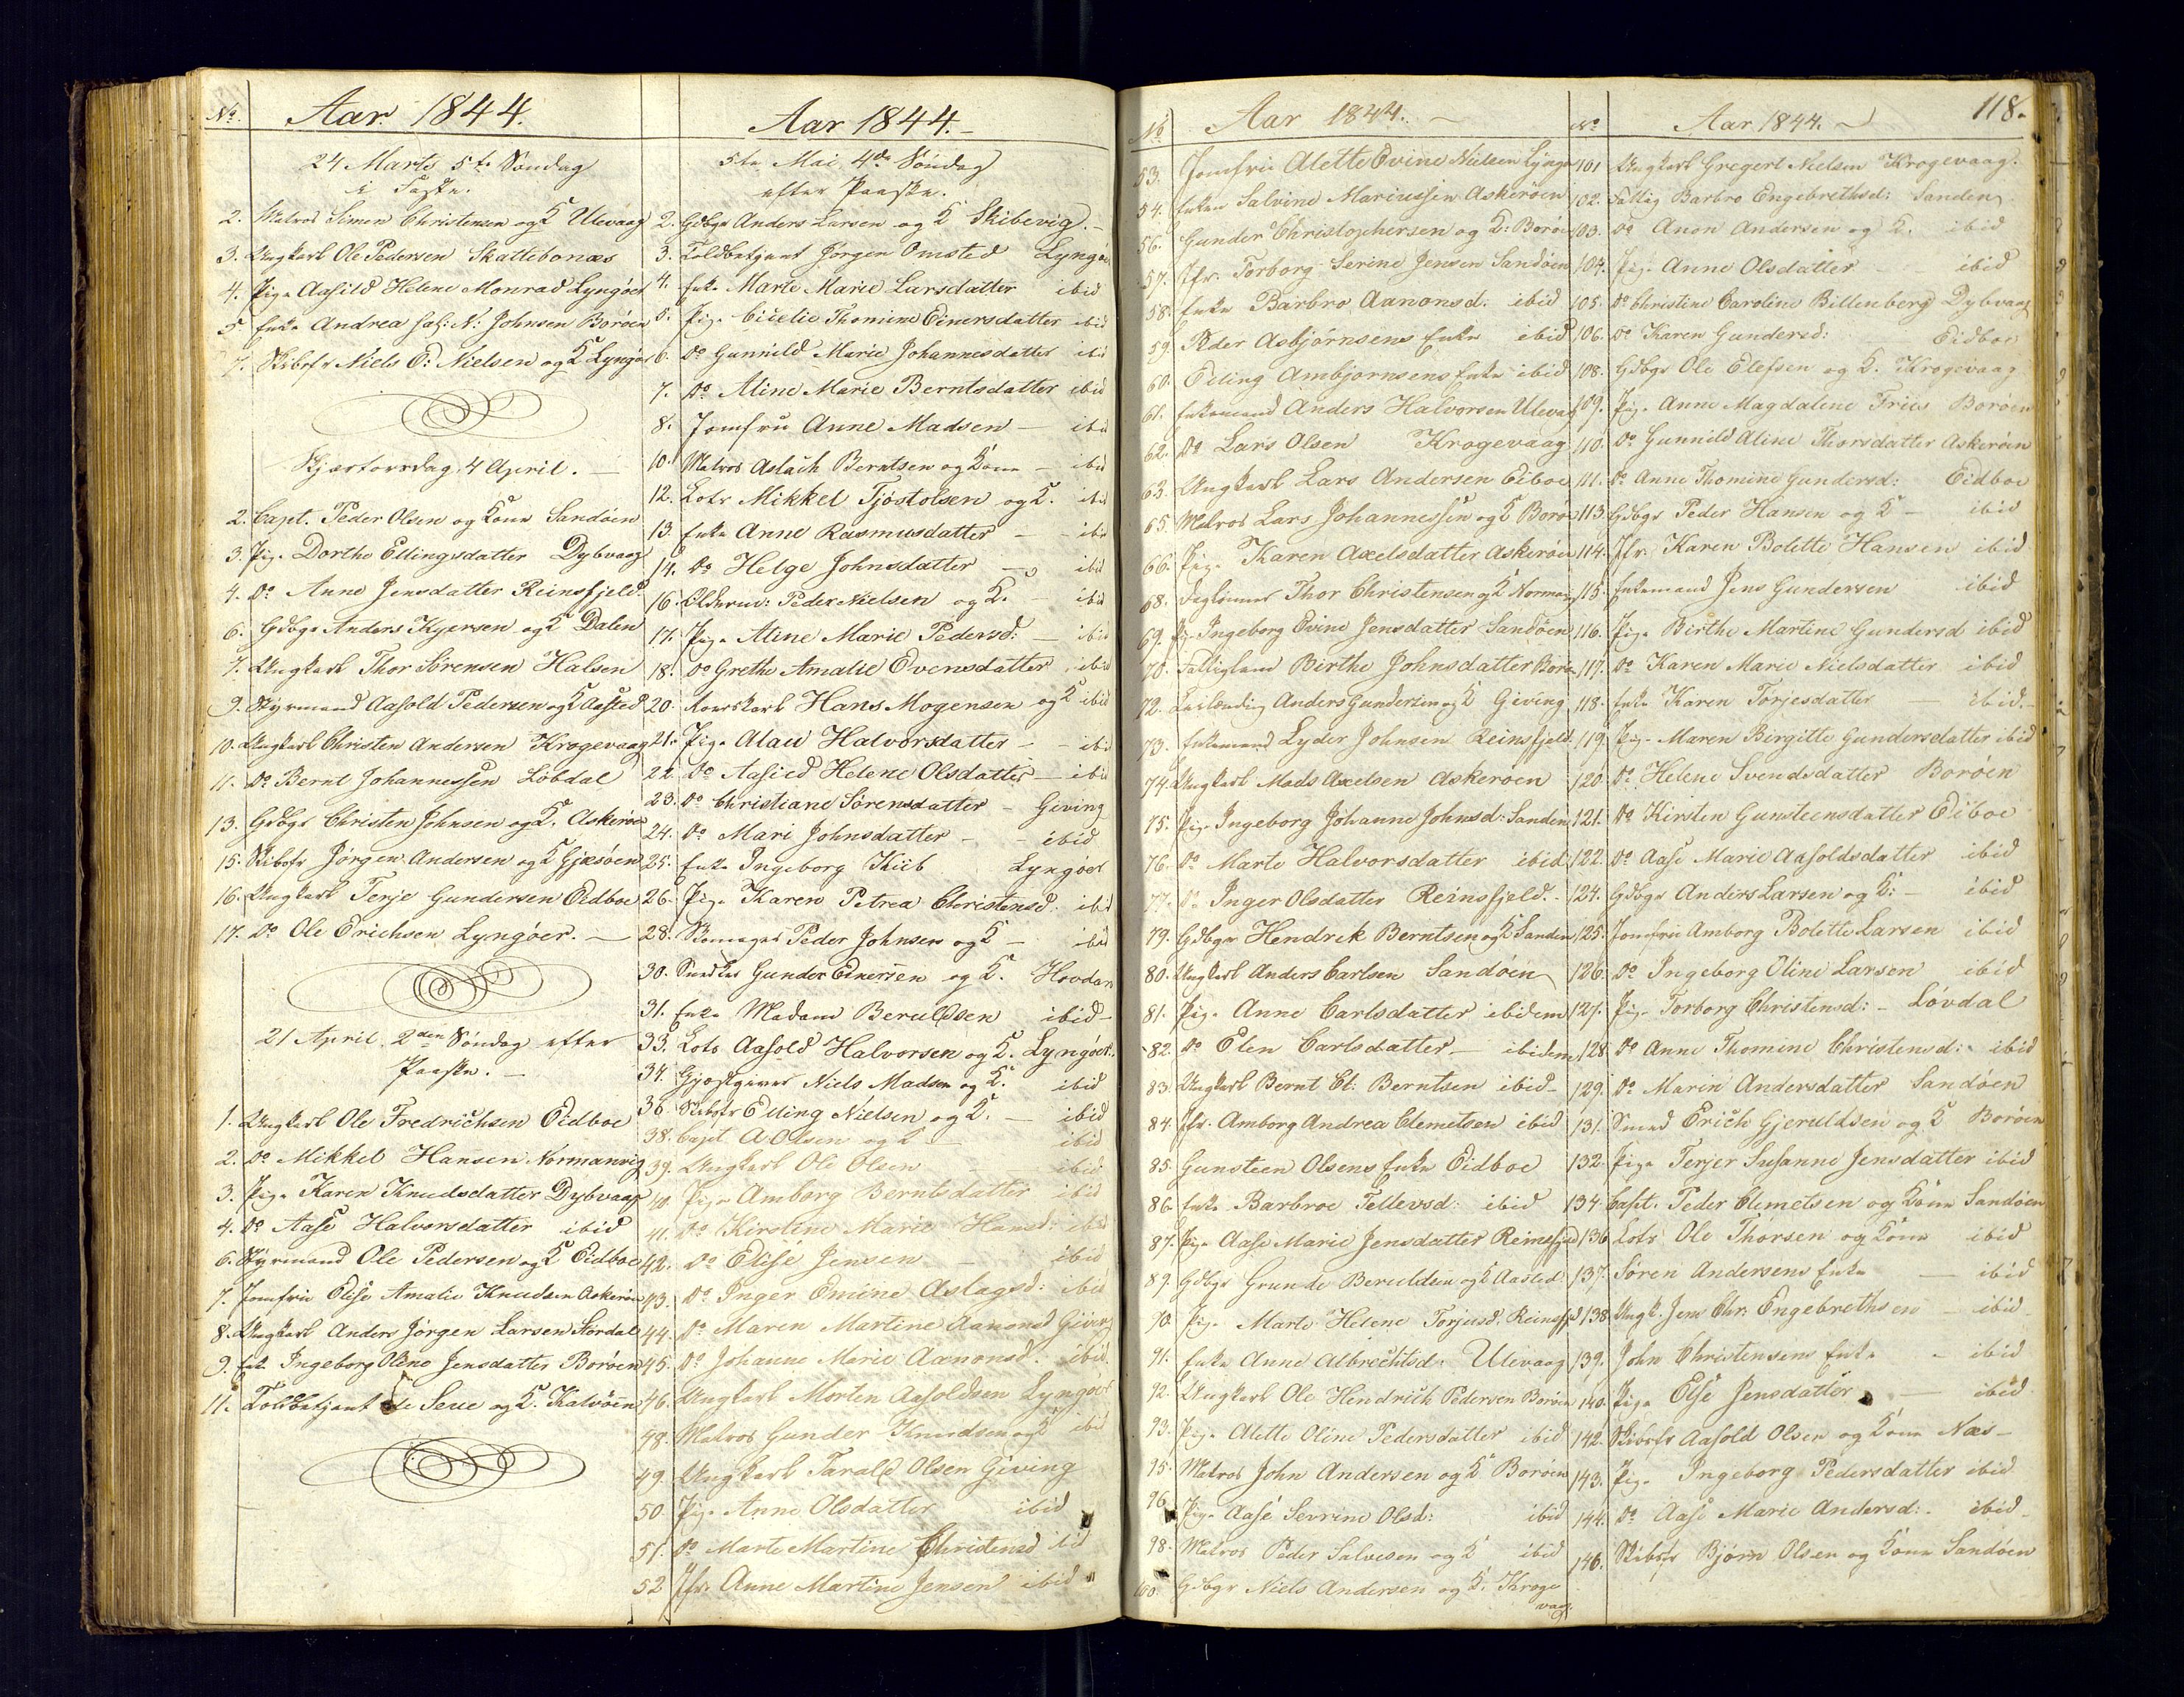 No. Aar 1844.
24 Marts 5te Søndag
i Faste.
2. Matros Simon Christensen og K Ulevaag
3. Ungkarl Ole Pedersen Skattebonæs
4. Pige Aasild Helene Monrad Lyngöer
5. Enke Andrea sal: N: Johnsen Boröen
7. Skibsfr Niels O: Nielsen og K Lyngöer
Skjærtorsdag 4 April. —
2. Capt. Peder Olsen og Kone Sandöen
3. Pige Dorthe Ellingsdatter Dybvaag
4. Do Anne Jensdatter Reinsfjeld
6. Gdbgr Anders Kjersen og K Dalen
7. Ungkarl Thor Sörensen Halsen
9. Styrmand Aasold Pedersen og K Aasted
10. Ungkarl Christen Andersen Krogevaag
11. Do Bernt Johannessen Lövdal
13. Gdbgr Christen Johnsen og K. Askeröen
15. Skibsfr Jörgen Andersen og K Gjæsöen
16. Ungkarl Terje Gundersen Eidboe
17. Do Ole Erichsen Lyngöer. —
21 April. 2den Søndag efter
Paaske. —
1. Ungkarl Ole Fredrichsen Eidboe
2. Do Mikkel Hansen Normanvig
3. Pige Karen Knudsdatter Dybvaag
4. Do Aase Halvorsdatter ibid
6. Styrmand Ole Pedersen og K Eidboe
7. Jomfru Elise Amalie Knudsen Askeröen
8. Ungkarl Anders Jörgen Larsen Stordal
9. Enke Ingeborg Oline Jensdatter Boröen
11. Toldbetjent de Seue og K. Kalvöen
Aar 1844. —
5te Mai. 4de Søndag
efter Paaske.
2. Gdbgr Anders Larsen og K Skibevig. —
3. Toldbetjent Jörgen Omsted Lyngöer
4. Enke Marte Marie Larsdatter ibid
5. Pige Cicelie Thomine Einersdatter ibid
6. Do Gunnild Marie Johannesdatter ibid
7. Do Aline Marie Berntsdatter ibid
8. Jomfru Anne Madsen — ibid
10. Matros Aslach Berntsen og Kone — ibid
12. Lots Mikkel Tjöstolsen og K. ibid
13. Enke Anne Rasmusdatter — ibid
14. Do Helge Johnsdatter — ibid
16. Peder Nielsen og K. — ibid
17. Pige Aline Marie Pedersd: — ibid
18. Do Grethe Amalie Evensdatter ibid
20. Hans Mogensen og K ibid
21. Pige Alau Halvorsdatter — ibid
22. Do Aasied Helene Olsdatter — ibid
23. Do Christiane Sörensdatter — Geving
24. Do Mari Johnsdatter — ibid
25. Enke Ingeborg Kiib Lyngöer
26. Pige Karen Petrea Christensd: ibid
28. Skomager Peder Johnsen og K — ibid
30. Snedker Gunder Einersen og K. Hovdan
31. Enke Madame Beruldsen ibid —
33. Lots Aasold Halvorsen og K. Lyngöer
34. Gjæstgiver Niels Madsen og K. ibid
36. Skibsfr Elling Nielsen og K. — ibid
38. Capt. A. Olsen og K — ibid
39. Ungkarl Ole Olsen — ibid
40. Pige Amborg Berntsdatter ibid
41. Do Kirstine Marie Hansd: ibid
42. Do Elise Jensen — ibid
43. Do Inger Emine Aslagsd: ibid
44. Do Maren Martine Aanonsd Geving
45. Do Johanne Marie Aanonsd. ibid.
46. Ungkarl Morten Aasoldsen Lyngöer
48. Matros Gunder Knudsen og K ibid
49. Ungkarl Tarald Olsen Geving
50. Pige Anne Olsdatter ibid
51. Do Marte Martine Christensd ibid
52 Jfr. Anne Martine Jensen ibid
No Aar 1844. —
53. Jomfru Alette Evine Nielsen Lyngöer
54. Enken Salvine Mariussen Askeröen
56. Gunder Christophersen og K: Boröen
57. Jfr: Torborg Serine Jensen Sandöen
58. Enke Barbro Aanonsd: ibid
59. Peder Asbjörnsens Enke ibid
60. Elling Ambjornsens Enke ibid
61. Enkemand Anders Halvorsen Ulevaag
62. Do Lars Olsen Krogevaag
63. Ungkarl Lars Andersen Eiboe
65. Matros Lars Johannessen og K Boröen
66. Pige Karen Axelsdatter Askeröen
68. Daglönner Thor Christensen og K Normanv
69. Pige Ingeborg Evine Jensdatter Sandöen
70. Fattiglem Birthe Johnsdatter Boröe
72. Anders Gundersen og K Geving
73. Enkemand Lyder Johnsen Reinsfjeld
74. Ungkarl Mads Axelsen Askeroen
75. Pige Ingeborg Johanne Johnsd: Sanden
76. Do Marte Halvorsdatter ibid
77. Do Inger Olsdatter Reinsfjeld. —
79. Gdbgr Hendrik Berntsen og K Sanden
80. Ungkarl Anders Carlsen Sandöen
81. Pige Anne Carlsdatter ibidem
82. Do Elen Carlsdatter — ibidem
83. Ungkarl Bernt Cl: Berntsen ibid —
84. Jfr. Amborg Andrea Clemetsen ibid
85. Gunsteen Olsens Enke Eidboe
86. Enke Barbroe Tellevsd: ibid
87. Pige Aase Marie Jensdatter Reinsfjeld
89. Gdbgr Grunde Beruldsen og K Aasted
90. Pige Marte Helene Torjusd. Reinsfjd
91. Enke Anne Albrechtsd: Ulevaag
92. Ungkarl Ole Hendrich Pedersen Boröen
93. Pige Alette Oline Pedersdatter ibid
95. Matros John Andersen og K Boröen
96. Pige Aase Sevrine Olsd: ibid
98. Matros Peder Salvesen og K ibid
100. Gdbgr Niels Andersen og K: Kroge
vaag.
No Aar 1844. — 118.
101 Ungkarl Gregert Nielsen Krogevaag.
102. Fattig Barbro Engebrethsd: Sanden
103. Do Anon Andersen og K. ibid
104. Pige Anne Olsdatter ibid
105. Do Christine Caroline Billenberg Dybvaag
106. Do Karen Gundersd: Eidboe
108. Gdbgr Ole Elefsen og K. Krogevaag
109. Pige Anne Magdalene Friis Boröen
110. Do Gunnild Aline Thorsdatter Askeröen
111. Do Anne Thomine Gundersd: Eidboe
113 Gdbgr Peder Hansen og K — ibid
114. Jfr: Karen Bolette Hansen ibid
115. Enkemand Jens Gundersen ibid
116. Pige Birthe Martine Gundersd ibid
117. Do Karen Marie Nielsdatter ibid
118. Enke Karen Torjesdatter — ibid. —
119 Pige Maren Birgitte Gundersdatter ibid
120 Do Helene Svendsdatter Boröen
121. Do Kirsten Gunsteensdatter Eiboe
122. Do Aase Marie Aasoldsdatter ibid
124. Gdbgr Anders Larsen og K: — ibid
125. Jomfru Amborg Bolette Larsen ibid
126. Do Ingeborg Oline Larsen ibid
127. Pige Torborg Christensd: — Lövdal
128. Do Anne Thomine Christensd: ibid
129. Do Marin Andersdatter Sandöen
131. Smed Erich Gjeruldsen og K Boröen
132. Pige Terjer Susanne Jensdatter ibid
134. Capt. Peder Clemetsen og Kone Sandöen
136 Lots Ole Thorsen og Kone ibid
137. Sören Andersens Enke — ibid
138 Ungk. Jens Chr. Engebrethsen — ibid
139. John Christensens Enke — ibid
140. Pige Else Jensdatter — ibid
142. Skibsfr Aasold Olsen og Kone Næs —
143. Pige Ingeborg Pedersdatter ibid
144. Do Aase Marie Andersd: — ibid —
146. Skibsfr Björn Olsen og Kone Sandöen